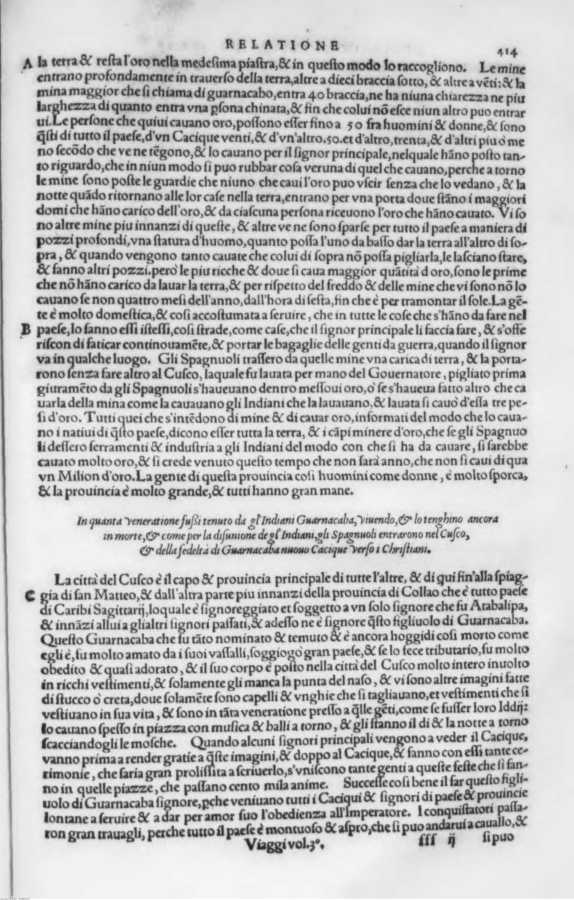 RELATIONE
414
A la terra & resta l'oro nella medesima piastra, & in questo modo lo raccogliono. Le mine
entrano profondamente in trauerso della terra, altre a dieci braccia sotto, & altre a vēti: & la
mina maggior che si chiama di guarnacabo, entra 40 braccia, ne ha niuna chiarezza ne piu
larghezza di quanto entra vna psona chinata, & fin che colui nō esce niun altro puo entrar
ui. Le persone che quiui cauano oro, possono esser fino a 50 fra huomini & donne, & sono
q̃sti di tutto il paese, d'vn Cacique venti, & d'vn'altro. 50. et d'altro, trenta, & d'altri piu o me
no secōdo che ve ne tēgono, & lo cauano per il signor principale, nelquale hāno posto tan-
to riguardo, che in niun modo si puo rubbar cosa veruna di quel che cauano, perche a torno
le mine sono poste le guardie che niuno che caui l'oro puo vscir senza che lo vedano, & la
notte quādo ritornano alle lor case nella terra, entrano per vna porta doue stāno i maggiori
domi che hāno carico dell'oro, & da ciascuna persona riceuono l'oro che hāno cauato. Vi so
no altre mine piu innanzi di queste, & altre ve ne sono sparse per tutto il paese a maniera di
pozzi profondi, vna statura d'huomo, quanto possa l'uno da basso dar la terra all'altro di so-
pra, & quando vengono tanto cauate che colui di sopra nō possa pigliarla, le lasciano stare,
& fanno altri pozzi. però le piu ricche & doue si caua maggior quātità d'oro, sono le prime
che nō hāno carico da lauar la terra, & per rispetto del freddo & delle mine che vi sono nō lo
cauano se non quattro mesi dell'anno, dall'hora di sesta, fin che è per tramontar il sole. La gē-
te è molto domestica, & così accostumata a seruire, che in tutte le cose che s'hāno da fare nel
B paese, lo fanno essi istessi, così strade, come case, che il signor principale li faccia fare, & s'offe
riscon di faticar continouamēte, & portar le bagaglie delle genti da guerra, quando il signor
va in qualche luogo. Gli Spagnuoli trassero da quelle mine vna carica di terra, & la porta-
rono senza fare altro al Cusco, laquale fu lauata per mano del Gouernatore, pigliato prima
giuramēto da gli Spagnuoli s'haueuano dentro messoui oro, ò se s'haueua fatto altro che ca
uarla della mina come la cauauano gli Indiani che la lauauano, & lauata si cauò d'essa tre pe-
si d'oro. Tutti quei che s'intēdono di mine & di cauar oro, informati del modo che lo caua-
no i natiui di q̃sto paese, dicono esser tutta la terra, & i cāpi minere d'oro, che se gli Spagnuo
li dessero ferramenti & industria a gli Indiani del modo con che si ha da cauare, si sarebbe
cauato molto oro, & si crede venuto questo tempo che non sarà anno, che non si caui di qua
vn Milion d'oro. La gente di questa prouincia così huomini come donne, è molto sporca,
& la prouincia è molto grande, & tutti hanno gran mane.
In quanta veneratione fussi tenuto da gl'Indiani Guarnacaba, viuendo, & lo tenghino ancora
in morte, & come per la disunione de gl'Indiani, gli Spagnuoli entrarono nel Cusco,
& della fedeltà di Guarnacaba nuouo Cacique verso i Christiani.
La città del Cusco è il capo & prouincia principale di tutte l'altre, & di qui fin'alla spiag-
C gia di san Matteo, & dall'altra parte piu innanzi della prouincia di Collao che è tutto paese
di Caribi Sagittarij, loquale è signoreggiato et soggetto a vn solo signore che fu Atabalipa,
& innāzi allui a gli altri signori passati, & adesso ne è signore q̃sto figliuolo di Guarnacaba.
Questo Guarnacaba che fu tāto nominato & temuto & è ancora hoggidi così morto come
egli è, fu molto amato da i suoi vassalli, soggiogò gran paese, & se lo fece tributario, fu molto
obedito & quasi adorato, & il suo corpo è posto nella città del Cusco molto intero inuolto
in ricchi vestimenti, & solamente gli manca la punta del naso, & vi sono altre imagini fatte
di stucco ò creta, doue solamēte sono capelli & vnghie che si tagliauano, et vestimenti che si
vestiuano in sua vita, & sono in tāta veneratione presso a q̃lle gēti, come se fusser loro Iddij:
lo cauano spesso in piazza con musica & balli a torno, & gli stanno il di & la notte a torno
scacciandogli le mosche. Quando alcuni signori principali vengono a veder il Cacique,
vanno prima a render gratie a q̃ste imagini, & doppo al Cacique, & fanno con essi tante ce-
rimonie, che saria gran prolissita a scriuerlo, s'vniscono tante genti a queste feste che si fan-
no in quelle piazze, che passano cento mila anime. Successe così bene il far questo figli-
uolo di Guarnacaba signore, pche veniuano tutti i Caciqui & signori di paese & prouincie
lontane a seruire & a dar per amor suo l'obedienza all'Imperatore. I conquistatori passa-
ron gran trauagli, perche tutto il paese è montuoso & aspro, che si puo andarui a cauallo, &
Viaggi vol. 3º. sss ij si puo